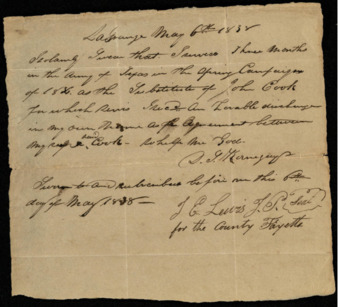 LaGrange May 6th 1838
I solemly Swear that I served three months
in the Army of Texas in the Spring Campaign
of 1836 as the Substitute of John Cook
for which service I recd An honorable discharge
in my own Name as per Agreement between
my self & said Cook - So help me God.
Sworn to and subscribed before me this 6th
day of May 1838 -
J E Lewis J. P. Seal
for the County Fayette